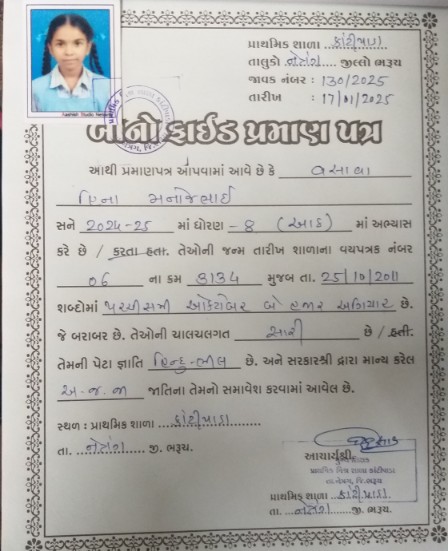 Aashish Studio Netrang
પ્રાથમિક શાળા કાંટીપાડા
તાલુકો નેત્રંગ જીલ્લો ભરૂચ
જાવક નંબર : 130/2025
તારીખ : 17/01/2025
બોનોફાઈડ પ્રમાણ પત્ર
આથી પ્રમાણપત્ર આપવામાં આવે છે કે વસાવા
હિના મનોજભાઈ
સને 2024-25 માં ધોરણ - 8 (આઠ) માં અભ્યાસ
કરે છે / કરતા હતા. તેઓની જન્મ તારીખ શાળાના વયપત્રક નંબર
06 ના ક્રમ 3134 મુજબ તા. 25/10/2011
શબ્દોમાં પચ્ચીસમી ઓક્ટોબર બે હજાર અગિયાર છે.
જે બરાબર છે. તેઓની ચાલચલગત સારી છે / હતી.
તેમની પેટા જ્ઞાતિ હિન્દુ-ભીલ છે. અને સરકારશ્રી દ્વારા માન્ય કરેલ
અ.જ.જા જાતિના તેમનો સમાવેશ કરવામાં આવેલ છે.
સ્થળ : પ્રાથમિક શાળા કાંટીપાડા
તા. નેત્રંગ જી. ભરૂચ.
આચાર્યશ્રી
પ્રાથમિક મિશ્ર શાળા કાંટીપાડા
તા.નેત્રંગ, જિ.ભરૂચ
પ્રાથમિક શાળા કાંટીપાડા
તા. નેત્રંગ જી. ભરૂચ.